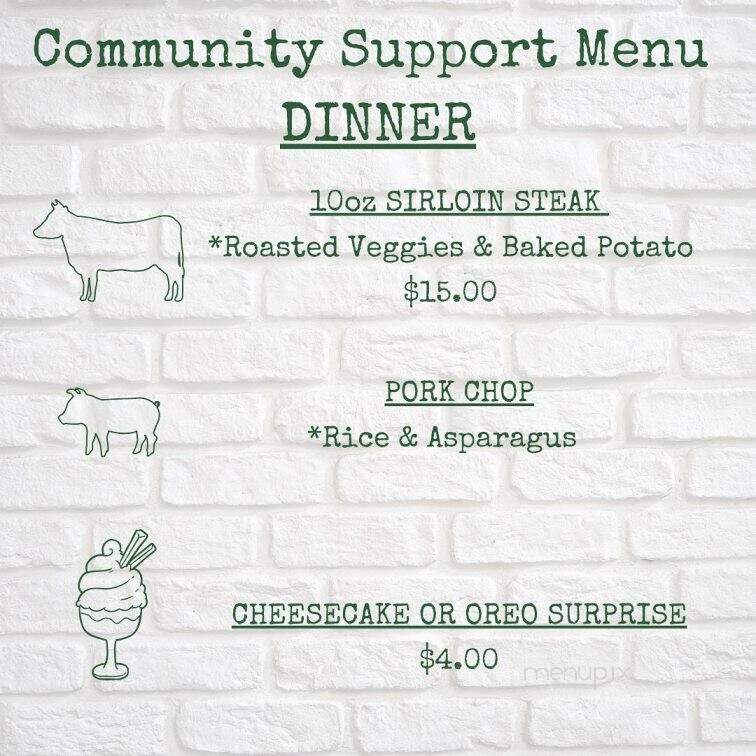 Community Support Menu
DINNER
10oz SIRLOIN STEAK
*Roasted Veggies & Baked Potato
$15.00
PORK CHOP
*Rice & Asparagus
CHEESECAKE OR OREO SURPRISE
$4.00
menupix